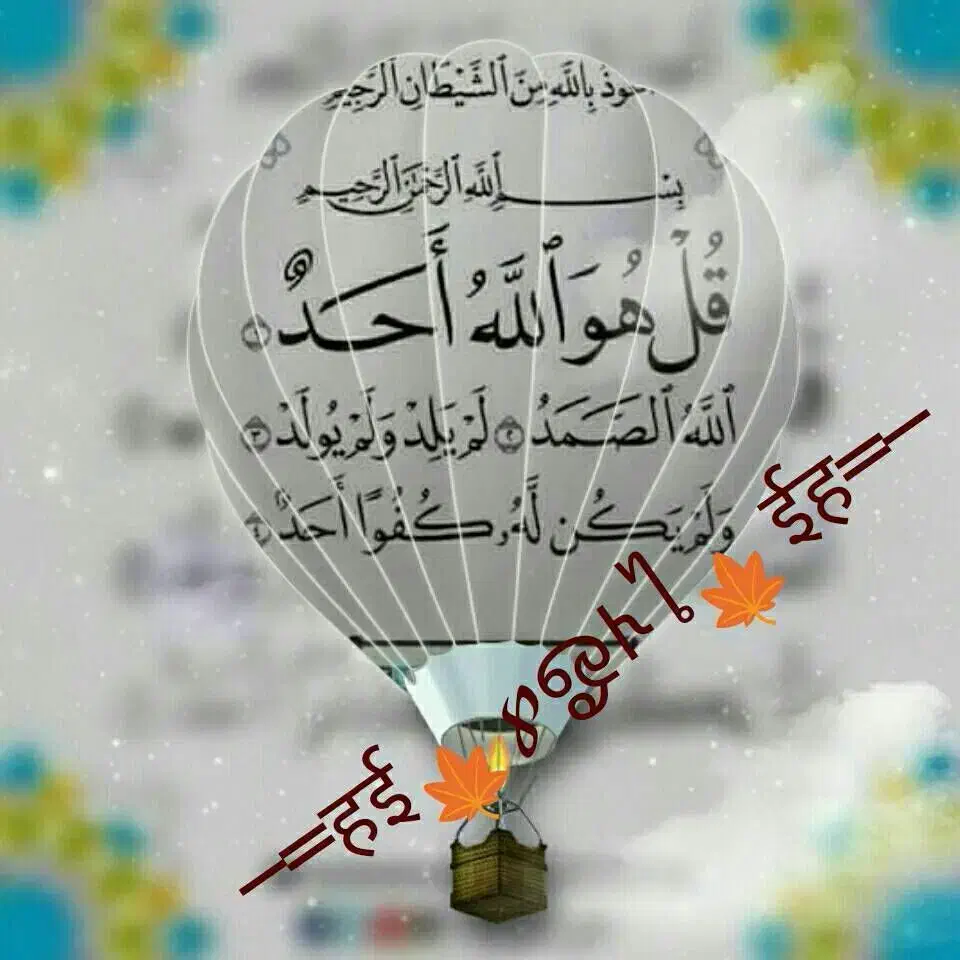 ـعوذ بِٱللَّهِ مِنَ ٱلشَّيْطَانِ ٱلرَّجِيمِ
بِسْمِ ٱللَّهِ ٱلرَّحْمَٰنِ ٱلرَّحِيمِ
قُلْ هُوَ ٱللَّهُ أَحَدٌ ١
ٱللَّهُ ٱلصَّمَدُ ٢ لَمْ يَلِدْ وَلَمْ يُولَدْ ٣
وَلَمْ يَكُن لَّهُۥ كُفُوًا أَحَدٌۢ ٤